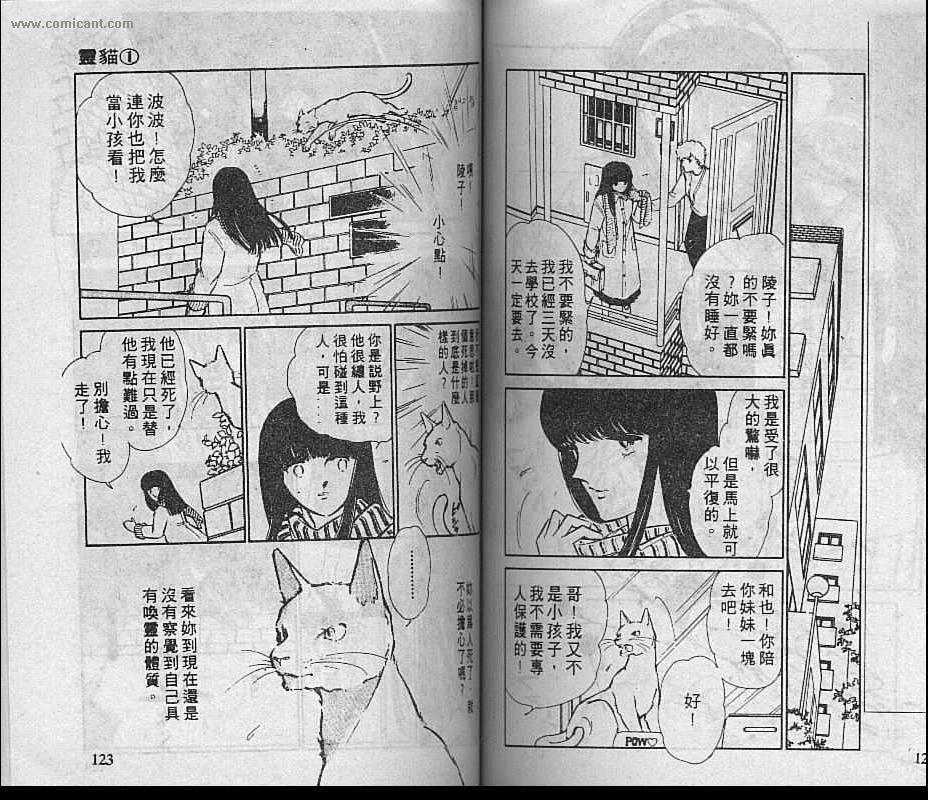 www.comicant.com
靈貓①
陵子！妳真
的不要緊嗎
？妳一直都
沒有睡好。
我不要緊的，
我已經三天沒
去學校了。今
天一定要去。
我是受了很
大的驚嚇，
但是馬上就可
以平復的。
和也！你陪
你妹妹一塊
去吧！
好！
哥！我又不
是小孩子，
我不需要專
人保護的！
POW♡
陵子！
小心點！
波波！怎麼
連你也把我
當小孩看！
到底是什麼
樣的人？
你是說野上？
他很纏人，我
很怕碰到這種
人，可是…
他已經死了，
我現在只是替
他有點難過。
別擔心！我
走了！
…………
妳以為人死了，就
不必擔心了嗎？
看來妳到現在還是
沒有察覺到自己具
有喚靈的體質。
123
12